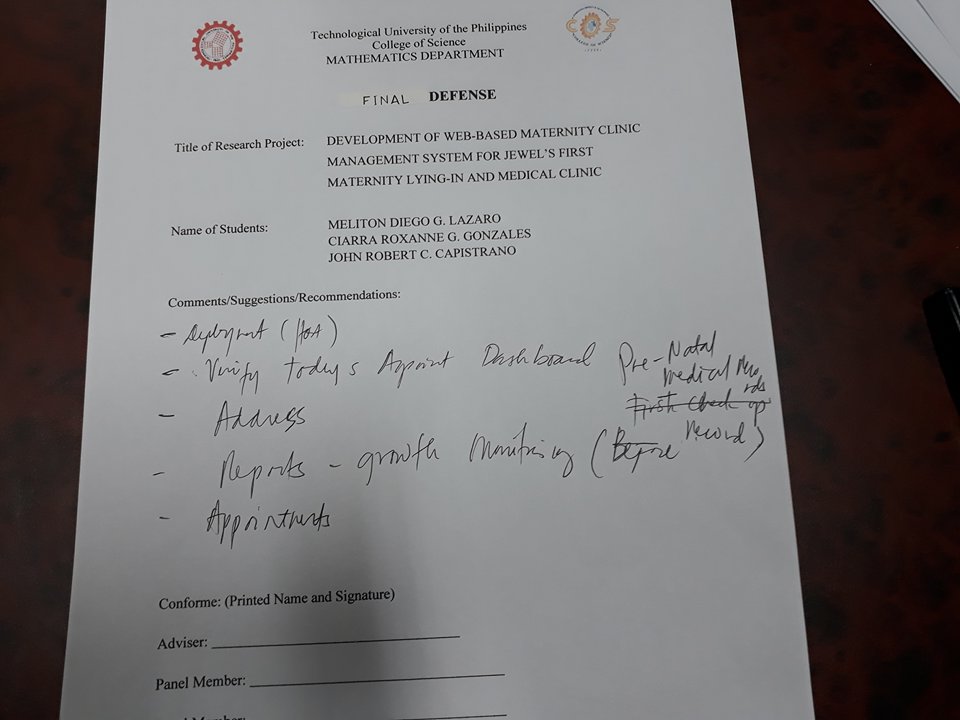 Technological University of the Philippines
College of Science
MATHEMATICS DEPARTMENT
FINAL DEFENSE
Title of Research Project: DEVELOPMENT OF WEB-BASED MATERNITY CLINIC
MANAGEMENT SYSTEM FOR JEWEL'S FIRST
MATERNITY LYING-IN AND MEDICAL CLINIC
Name of Students: MELITON DIEGO G. LAZARO
CIARRA ROXANNE G. GONZALES
JOHN ROBERT C. CAPISTRANO
Comments/Suggestions/Recommendations:
- Deployment
- Verify today's Appoint Dashboard
Pre-Natal
Medical
First Check up
- Address
- Reports - growth Monitoring (Before record)
- Appointments
Conforme: (Printed Name and Signature)
Adviser:
Panel Member: